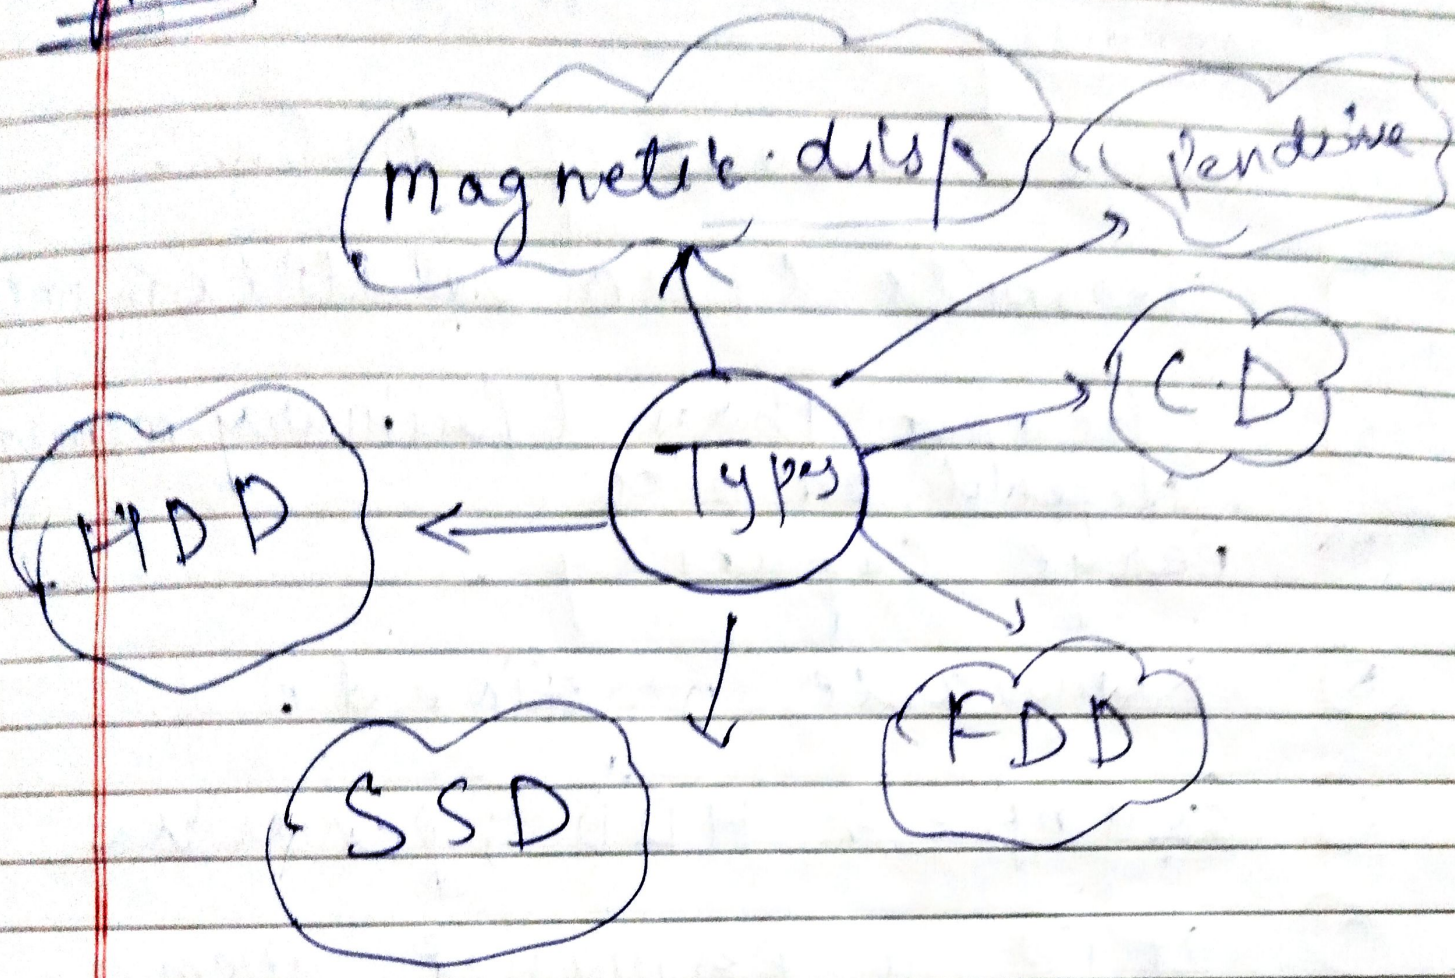 Magnetic disp
Pendrive
C.D
Types
HDD
FDD
SSD